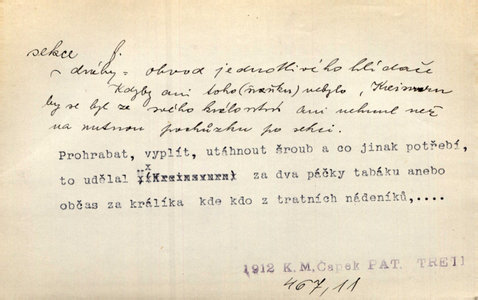 sekce f.
~ dráhy = obvod jednotlivého hlídače
Kdyby ani toho (naňku) nebylo, Kreimuru
by se byl ze svého království ani nehnul než
na nutnou pochůzku po sekci.
Prohrabat, vyplít, utáhnout šroub a co jinak potřebí,
to udělal za dva páčky tabáku anebo
občas za králíka kde kdo z tratních nádeníků,....
1912 K.M.Čapek PAT. TRETI
467,11